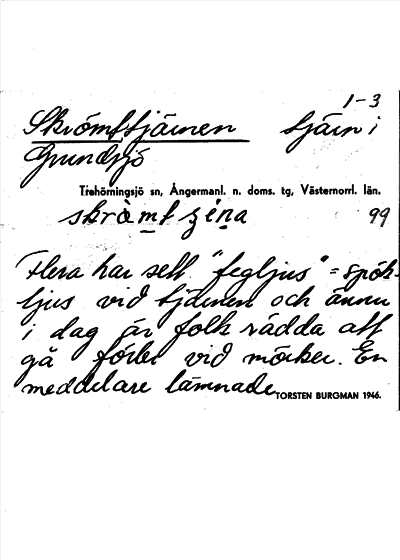 1-3
Skrömttjärnen tjärn i
Grundsjö
Trehörningsjö sn, Ångermanl. n. doms. tg, Västernorrl. län.
skrò̀mtʒéna 99
Flera har sett "fegljus" = spök-
ljus vid tjärnen och ännu
i dag är folk rädda att
gå förbi vid mörker. En
meddelare lämnade
TORSTEN BURGMAN 1946.